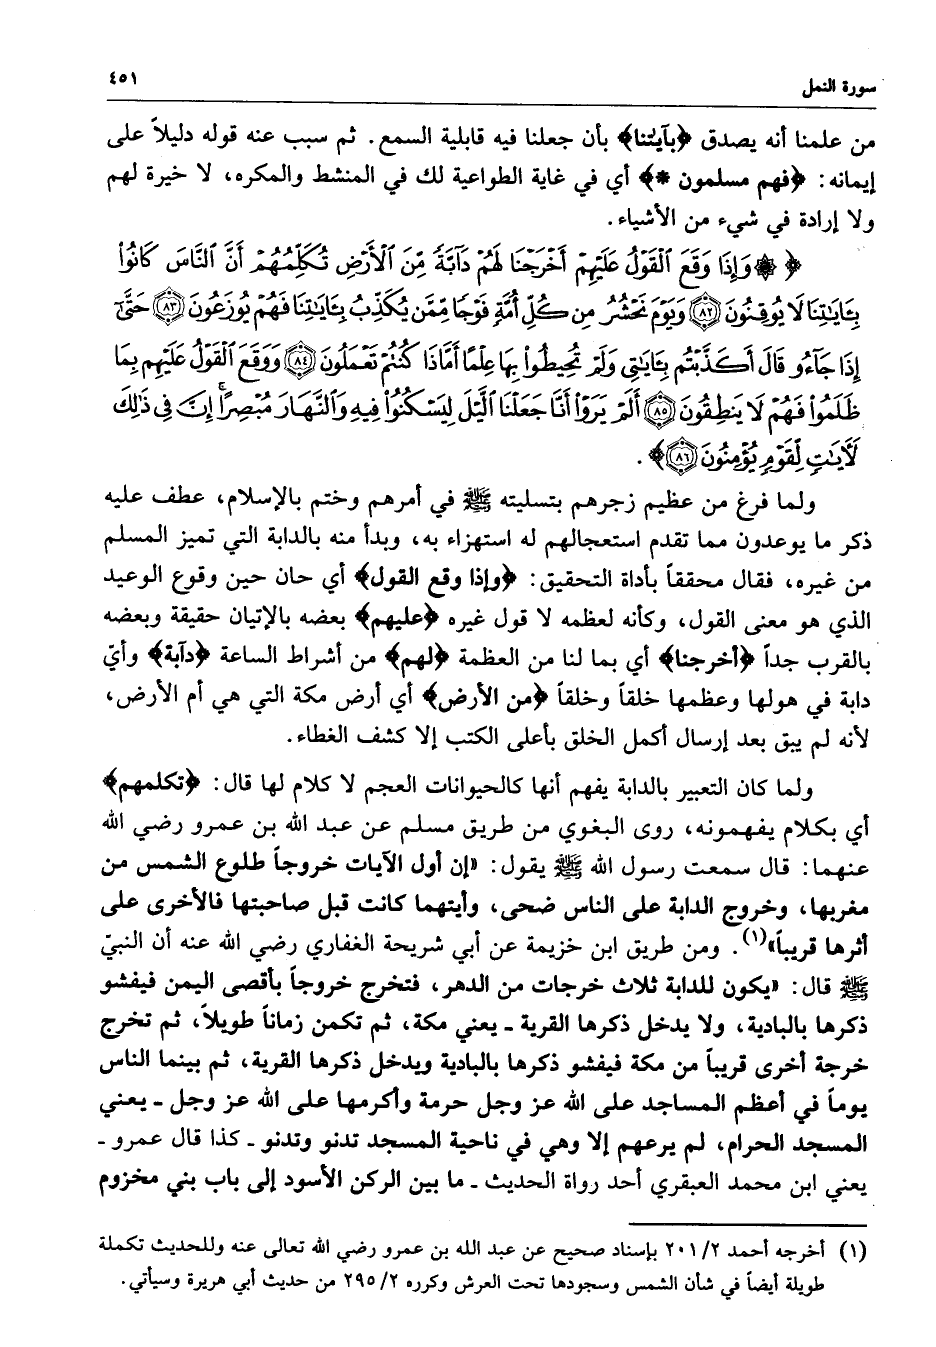 سورة النمل ٤٥١
من علمنا أنه يصدق ﴿بآيٰتنا﴾ بأن جعلنا فيه قابلية السمع. ثم سبب عنه قوله دليلاً على
إيمانه: ﴿فهم مسلمون *﴾ أي في غاية الطواعية لك في المنشط والمكره، لا خيرة لهم
ولا إرادة في شيء من الأشياء.
﴿ ۞ وَإِذَا وَقَعَ ٱلْقَوْلُ عَلَيْهِمْ أَخْرَجْنَا لَهُمْ دَآبَّةً مِّنَ ٱلْأَرْضِ تُكَلِّمُهُمْ أَنَّ ٱلنَّاسَ كَانُوا۟
بِـَٔايَـٰتِنَا لَا يُوقِنُونَ ﴿٨٢﴾ وَيَوْمَ نَحْشُرُ مِن كُلِّ أُمَّةٍ فَوْجًا مِّمَّن يُكَذِّبُ بِـَٔايَـٰتِنَا فَهُمْ يُوزَعُونَ ﴿٨٣﴾ حَتَّىٰٓ
إِذَا جَآءُو قَالَ أَكَذَّبْتُم بِـَٔايَـٰتِى وَلَمْ تُحِيطُوا۟ بِهَا عِلْمًا أَمَّاذَا كُنتُمْ تَعْمَلُونَ ﴿٨٤﴾ وَوَقَعَ ٱلْقَوْلُ عَلَيْهِم بِمَا
ظَلَمُوا۟ فَهُمْ لَا يَنطِقُونَ ﴿٨٥﴾ أَلَمْ يَرَوْا۟ أَنَّا جَعَلْنَا ٱلَّيْلَ لِيَسْكُنُوا۟ فِيهِ وَٱلنَّهَارَ مُبْصِرًا ۚ إِنَّ فِى ذَٰلِكَ
لَـَٔايَـٰتٍ لِّقَوْمٍ يُؤْمِنُونَ ﴿٨٦﴾﴾.
ولما فرغ من عظيم زجرهم بتسليته ﷺ في أمرهم وختم بالإسلام، عطف عليه
ذكر ما يوعدون مما تقدم استعجالهم له استهزاء به، وبدأ منه بالدابة التي تميز المسلم
من غيره، فقال محققاً بأداة التحقيق: ﴿وإذا وقع القول﴾ أي حان حين وقوع الوعيد
الذي هو معنى القول، وكأنه لعظمه لا قول غيره ﴿عليهم﴾ بعضه بالإتيان حقيقة وبعضه
بالقرب جداً ﴿أخرجنا﴾ أي بما لنا من العظمة ﴿لهم﴾ من أشراط الساعة ﴿دآبة﴾ وأيّ
دابة في هولها وعظمها خلقاً وخلقاً ﴿من الأرض﴾ أي أرض مكة التي هي أم الأرض،
لأنه لم يبق بعد إرسال أكمل الخلق بأعلى الكتب إلا كشف الغطاء.
ولما كان التعبير بالدابة يفهم أنها كالحيوانات العجم لا كلام لها قال: ﴿تكلمهم﴾
أي بكلام يفهمونه، روى البغوي من طريق مسلم عن عبد الله بن عمرو رضي الله
عنهما: قال سمعت رسول الله ﷺ يقول: «إن أول الآيات خروجاً طلوع الشمس من
مغربها، وخروج الدابة على الناس ضحى، وأيتهما كانت قبل صاحبتها فالأخرى على
أثرها قريباً»(١). ومن طريق ابن خزيمة عن أبي شريحة الغفاري رضي الله عنه أن النبيّ
ﷺ قال: «يكون للدابة ثلاث خرجات من الدهر، فتخرج خروجاً بأقصى اليمن فيفشو
ذكرها بالبادية، ولا يدخل ذكرها القرية ـ يعني مكة، ثم تكمن زماناً طويلاً، ثم تخرج
خرجة أخرى قريباً من مكة فيفشو ذكرها بالبادية ويدخل ذكرها القرية، ثم بينما الناس
يوماً في أعظم المساجد على الله عز وجل حرمة وأكرمها على الله عز وجل ـ يعني
المسجد الحرام، لم يرعهم إلا وهي في ناحية المسجد تدنو وتدنو ـ كذا قال عمرو ـ
يعني ابن محمد العبقري أحد رواة الحديث ـ ما بين الركن الأسود إلى باب بني مخزوم
(١) أخرجه أحمد ٢/ ٢٠١ بإسناد صحيح عن عبد الله بن عمرو رضي الله تعالى عنه وللحديث تكملة
طويلة أيضاً في شأن الشمس وسجودها تحت العرش وكرره ٢/ ٢٩٥ من حديث أبي هريرة وسيأتي.